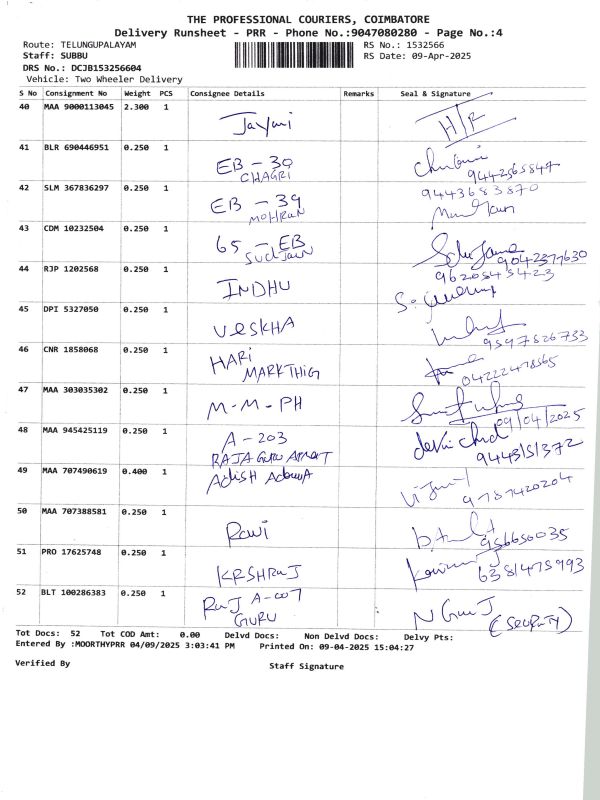 THE PROFESSIONAL COURIERS, COIMBATORE
Delivery Runsheet - PRR - Phone No.:9047080280 - Page No.:4
Route: TELUNGUPALAYAM RS No.: 1532566
Staff: SUBBU RS Date: 09-Apr-2025
DRS No.: DCJB153256604
Vehicle: Two Wheeler Delivery
S No Consignment No Weight PCS Consignee Details Remarks Seal & Signature
40 MAA 9000113045 2.300 1 H/F
41 BLR 690446951 0.250 1 EB - 30
CHAGRI 9442565847
42 SLM 367836297 0.250 1 EB - 39 9443683870
MOHRUN
43 CDM 10232504 0.250 1 65 - EB
9042377630
44 RJP 1202568 0.250 1 INDHU 9620545423
45 DPI 5327050 0.250 1 VESKHA 9597526733
46 CNR 1858068 0.250 1 HARI
MARKTHIG 04222478565
47 MAA 303035302 0.250 1 M-M-PH 09/04/2025
48 MAA 945425119 0.250 1 A - 203
RAJA GURU 9443151372
49 MAA 707490619 0.400 1 9787420204
50 MAA 707388581 0.250 1 Rawi 956650035
51 PRO 17625748 0.250 1 KRSHRAJ 6381475993
52 BLT 100286383 0.250 1 RAJ A-007
GURU (SECURITY)
Tot Docs: 52 Tot COD Amt: 0.00 Delvd Docs: Non Delvd Docs: Delvy Pts:
Entered By :MOORTHYPRR 04/09/2025 3:03:41 PM Printed On: 09-04-2025 15:04:27
Verified By Staff Signature